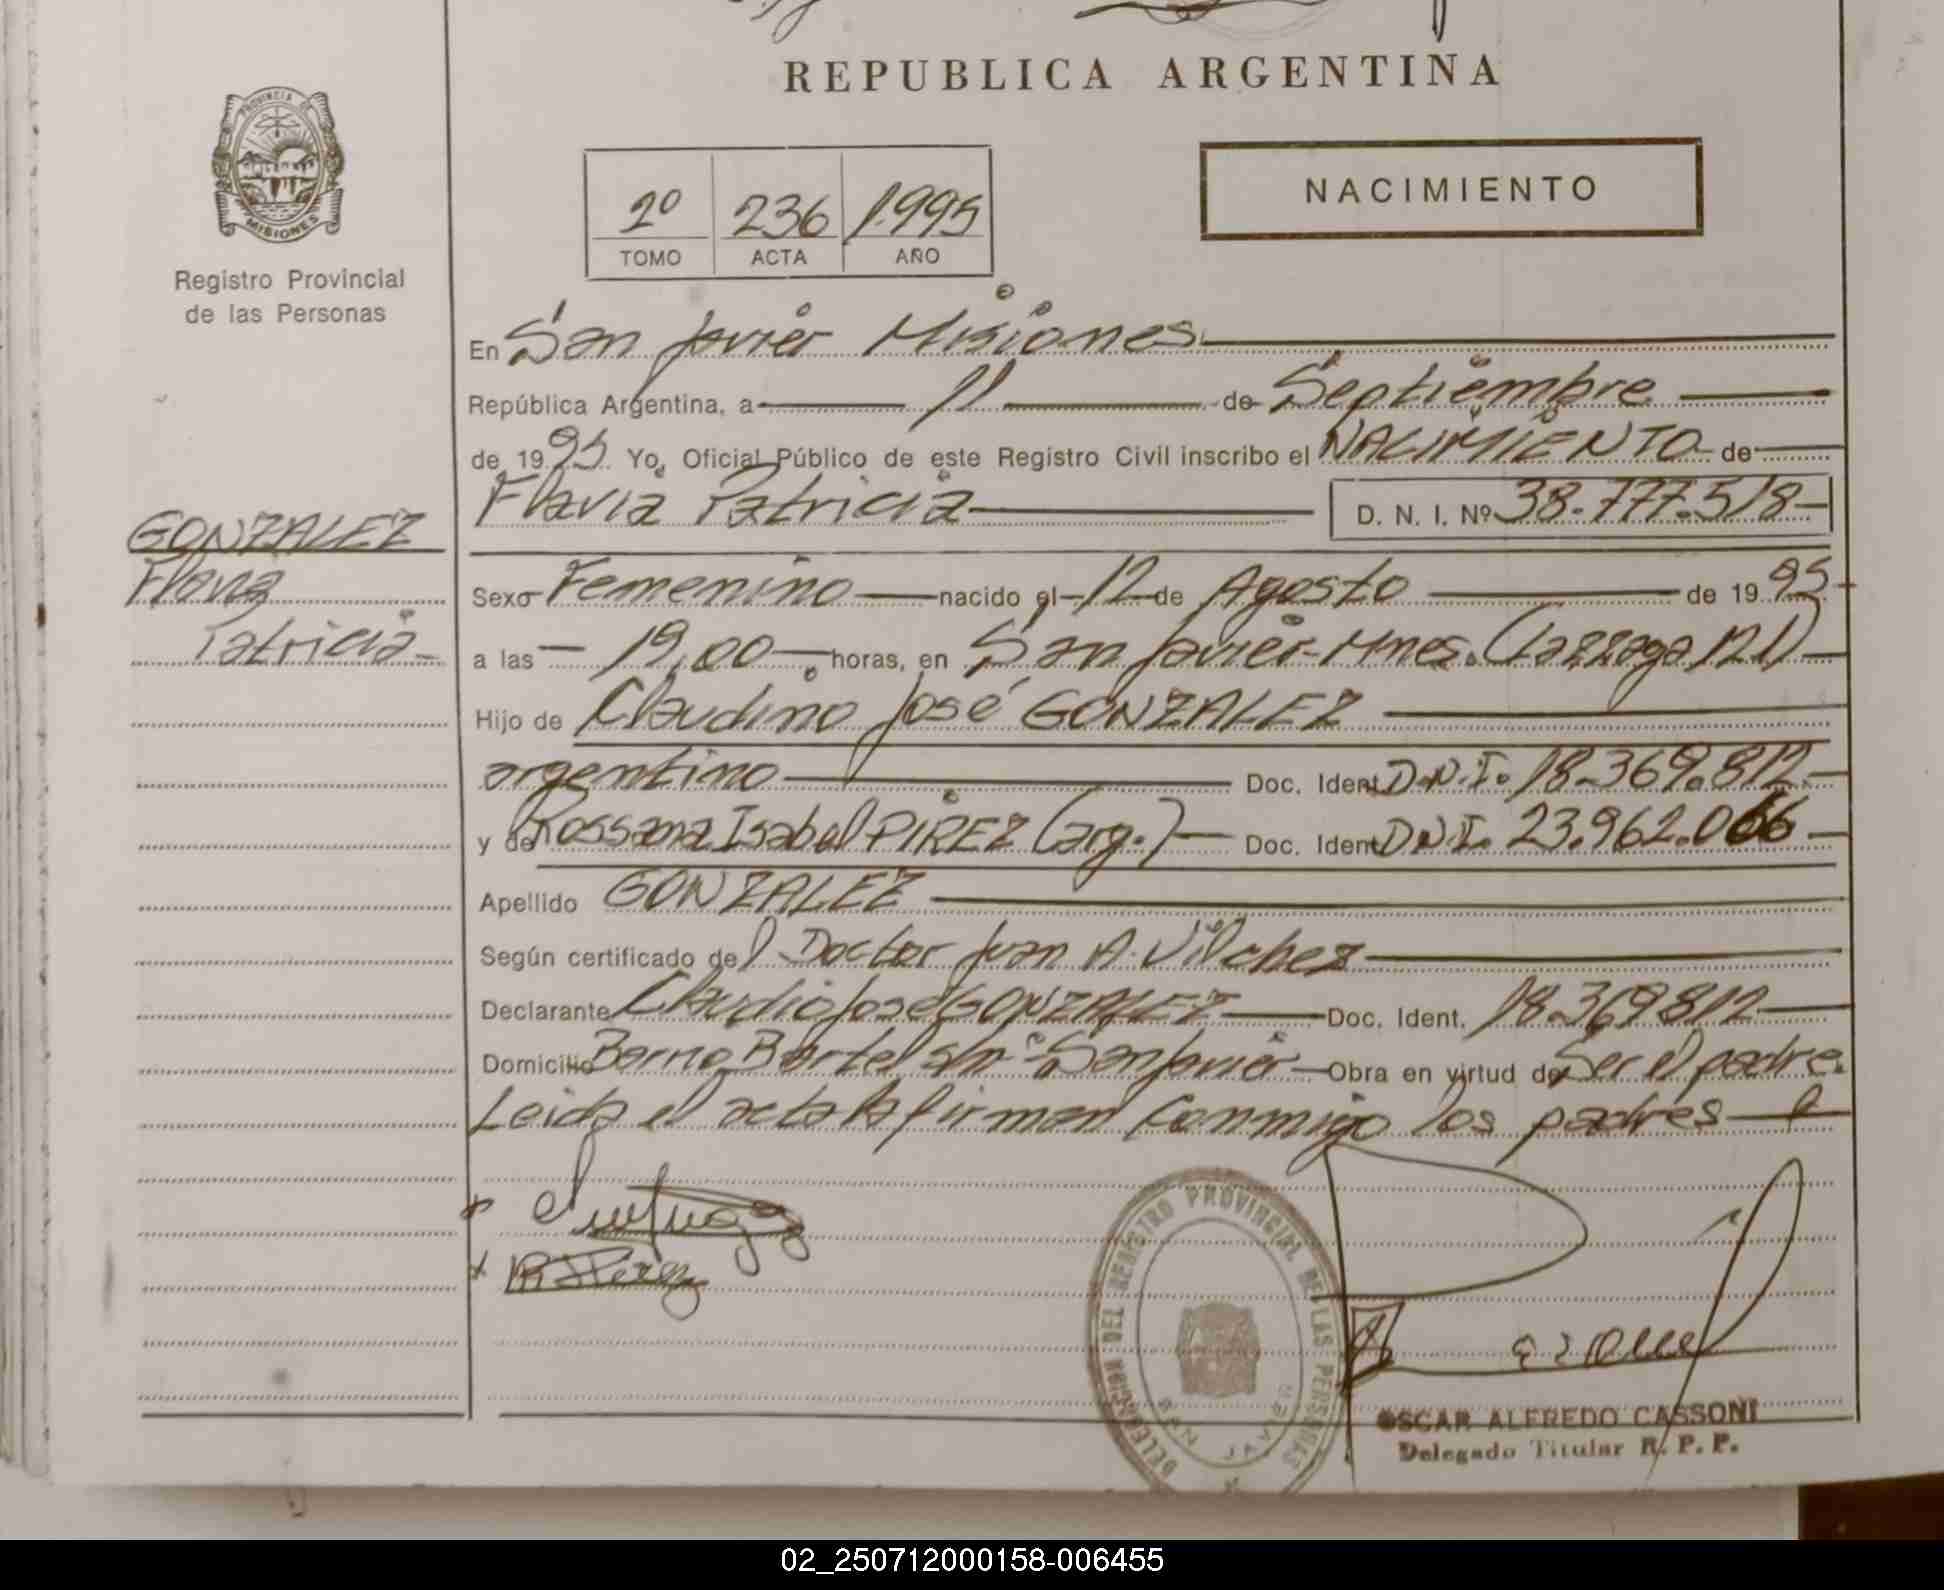 REPUBLICA ARGENTINA
PROVINCIA DE
MISIONES
Registro Provincial
de las Personas
2º 236 1995
TOMO ACTA AÑO
NACIMIENTO
En San Javier Misiones
República Argentina, a 11 de Septiembre
de 1995 Yo, Oficial Público de este Registro Civil inscribo el NACIMIENTO de
Flavia Patricia D. N. I. Nº 38.777.518
GONZALEZ
Flavia
Patricia
Sexo Femenino nacido el 12 de Agosto de 1995
a las 19,00 horas, en San Javier-Mnes.
Hijo de Claudino José GONZALEZ
argentino Doc. Ident. D.N.I. 18.369.812
y de Rossana Isabel PIREZ (arg.) Doc. Ident. D.N.I. 23.962.066
Apellido GONZALEZ
Según certificado del Doctor Juan A. Vilchez
Declarante Claudio José GONZALEZ Doc. Ident. 18.369812
Domicilio Barrio Bartel s/nº San Javier Obra en virtud de Ser el padre.
Leida el acta la firman conmigo los padres
DELEGACION DEL REGISTRO PROVINCIAL DE LAS PERSONAS
SAN JAVIER
OSCAR ALFREDO CASSONI
Delegado Titular R. P. P.
02_250712000158-006455